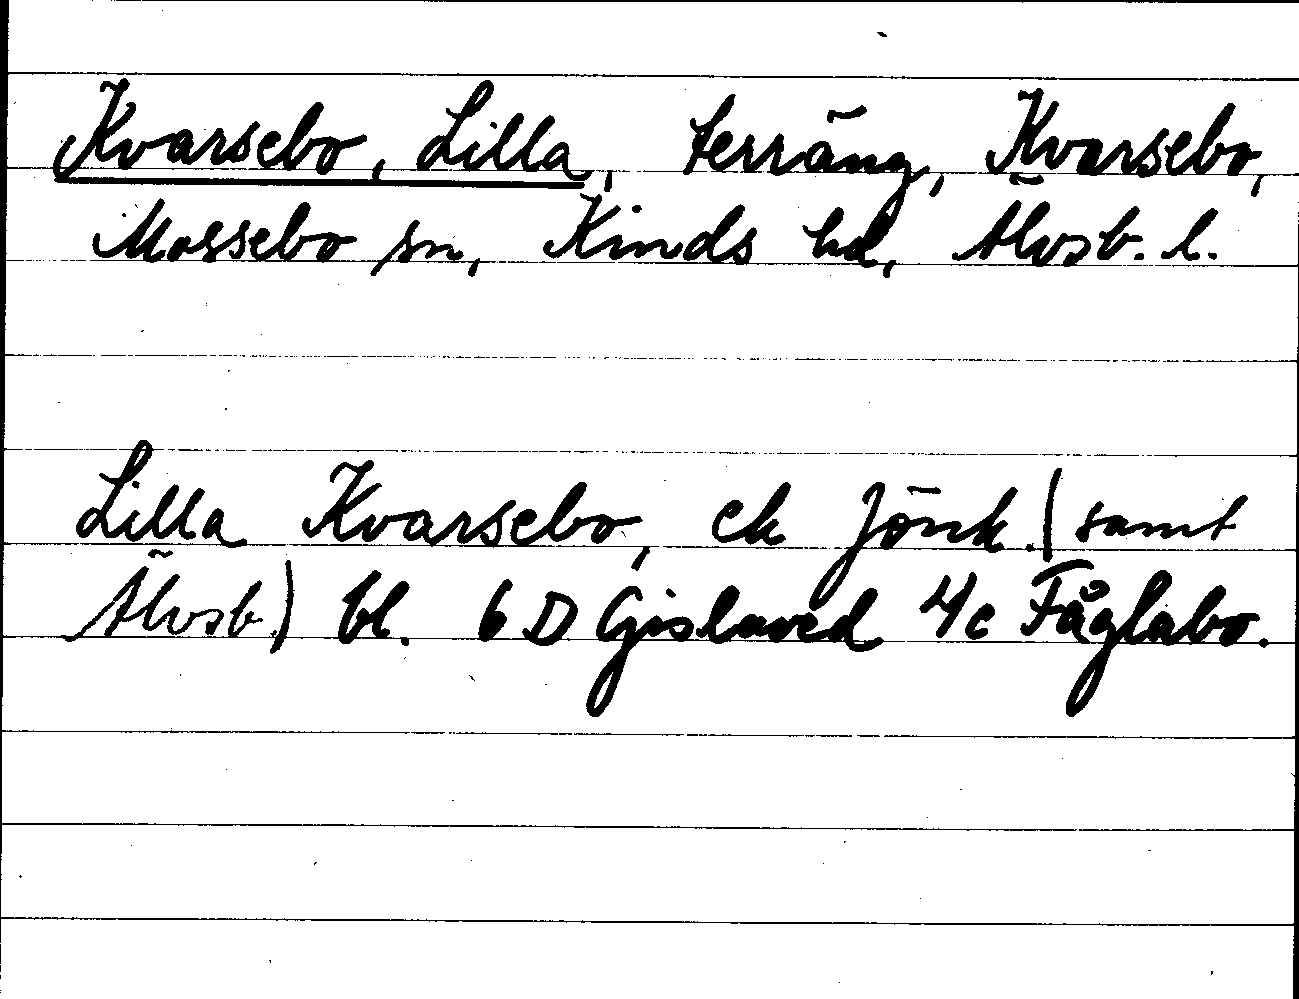 Kvarsebo, Lilla, terräng, Kvarsebo,
Mossebo sn, Kinds hd, Älvsb. l.
Lilla Kvarsebo, ek Jönk. (samt
Älvsb.) bl. 6 D Gislaved 4c Fåglabo.